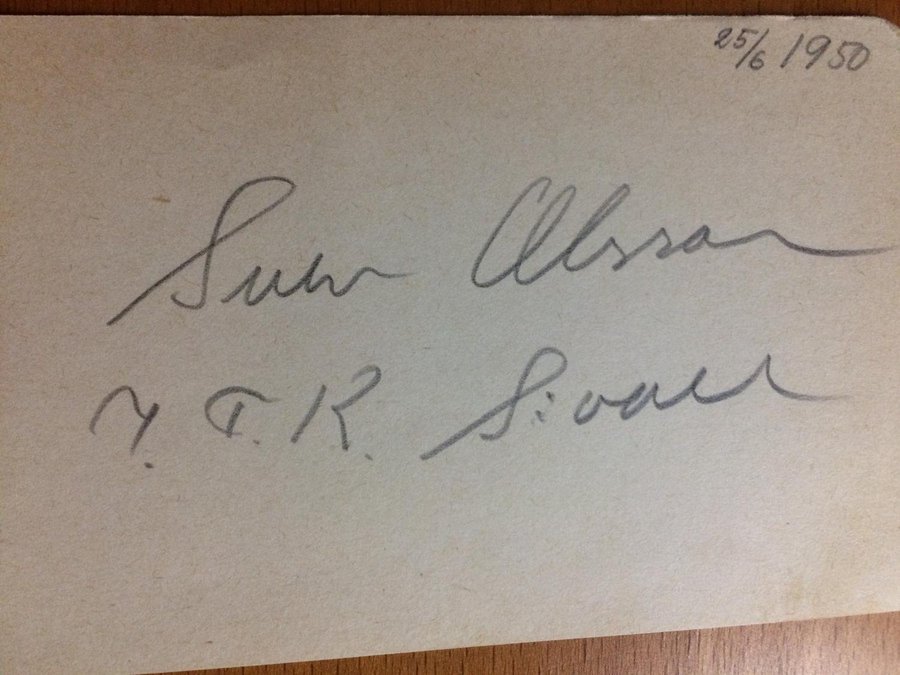 25/6 1950
Sven Olsson
I.F.K. S:vall